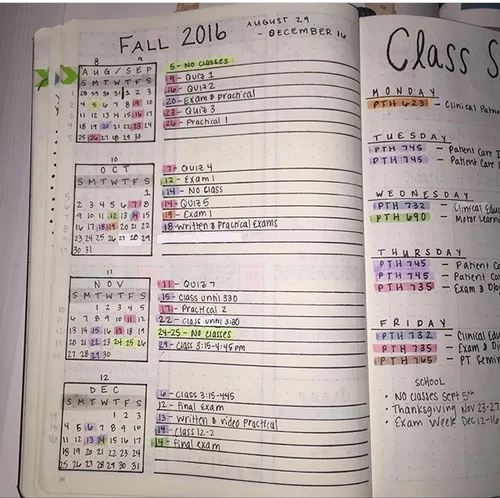 FALL 2016
AUGUST 29
- DECEMBER 16
8 9
AUG/SEP
S M T W T F S
28 29 30 31 1 2 3
4 5 6 7 8 9 10
11 12 13 14 15 16 17
18 19 20 21 22 23 24
25 26 27 28 29 30
5 - NO CLASSES
9 - QUIZ 1
16 - QUIZ 2
20 - Exam & Practical
23 - QUIZ 3
26 - Practical 1
10
OCT
S M T W T F S
1
2 3 4 5 6 7 8
9 10 11 12 13 14 15
16 17 18 19 20 21 22
23 24 25 26 27 28 29
30 31
7 - QUIZ 4
12 - Exam 1
14 - NO CLASS
14 - QUIZ 5
19 - Exam 1
18 - written & Practical Exams
11
NOV
S M T W T F S
1 2 3 4 5
6 7 8 9 10 11 12
13 14 15 16 17 18 19
20 21 22 23 24 25 26
27 28 29 30
11 - QUIZ 7
15 - Class until 330
17 - Practical 2
22 - Class until 3:30
24-25 - NO CLASSES
29 - Class 3:15-4:45pm
12
DEC
S M T W T F S
1 2 3
4 5 6 7 8 9 10
11 12 13 14 15 16 17
18 19 20 21 22 23 24
25 26 27 28 29 30 31
6 - Class 3:15-445
12 - Final Exam
13 - written & video Practical
14 - Class 12-2
14 - Final exam
Class S
MONDAY
PTH 623 - Clinical
TUESDAY
PTH 745 - Patient Care
PTH 745 - Patient Care
WEDNESDAY
PTH 732 - Clinical
PTH 690 - Motor
THURSDAY
PTH 745 - Patient
PTH 745 - Patient
PTH 735 - Exam &
FRIDAY
PTH 732 - Clinical
PTH 735 - Exam &
PTH 765 - PT
SCHOOL
• NO CLASSES Sept 5th
• Thanksgiving Nov 23-27
• Exam Week Dec 12-16